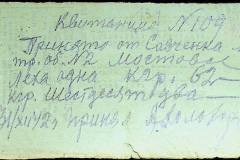 Квитанция №109
Принято от Савченка
тр. об. №2 Мостовое
меха одна кгр. 62
кгр. Шестдесят два
31/XII 42, принял